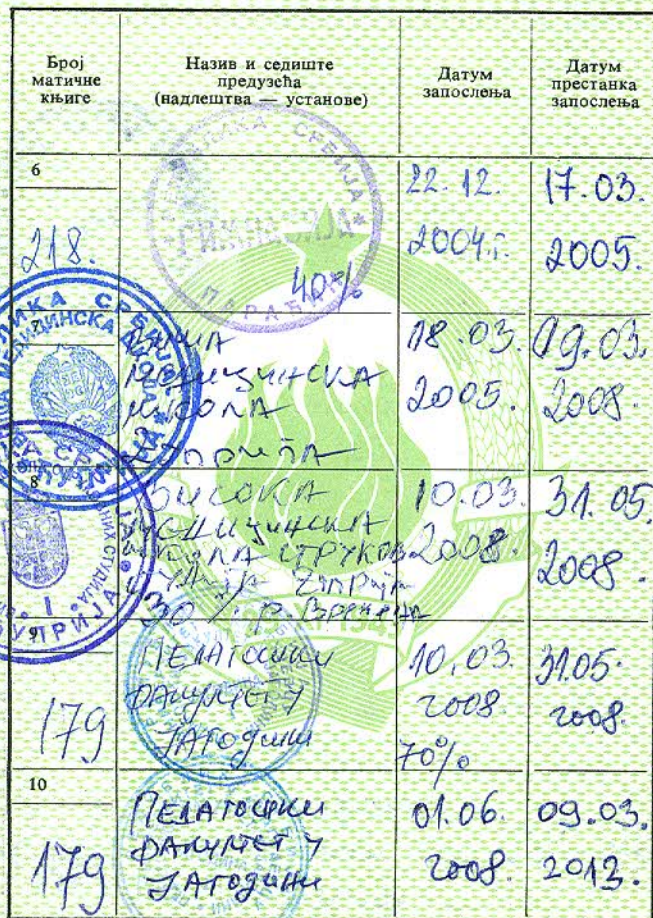 Број матичне књиге
Назив и седиште предузећа (надлештва — установе)
Датум запослења
Датум престанка запослења
6
218.
РЕПУБЛИКА СРБИЈА
ГИМНАЗИЈА
ПАРАЋИН
40%
22.12.
2004.г.
17.03.
2005.
7
ВИША
МЕДИЦИНСКА
ШКОЛА
ЋУПРИЈА
18.03.
2005.
09.03.
2008.
8
ВИСОКА
МЕДИЦИНСКА
ШКОЛА СТРУКОВ
Ћуприја
30% р. Времена
10.03.
2008.
31.05.
2008.
9
179
ПЕДАГОШКИ
ФАКУЛТЕТ У
ЈАГОДИНИ
10.03.
2008.
70%
31.05.
2008.
10
179
ПЕДАГОШКИ
ФАКУЛТЕТ У
ЈАГОДИНИ
01.06.
2008.
09.03.
2013.